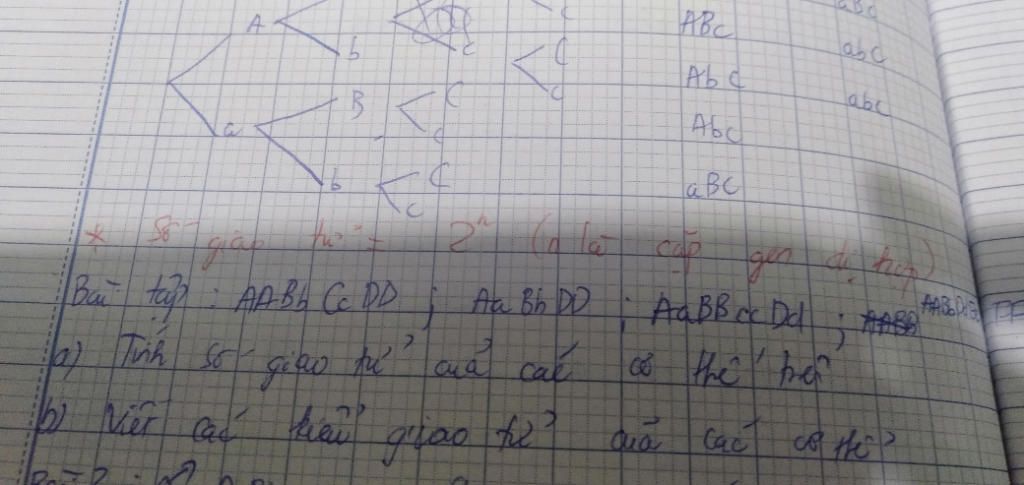 A
b
c
C
c
ABc
aBc
AbC
abC
Abc
abc
a
B
C
c
b
C
c
aBC
* Số giao tử = 2ⁿ (n là cặp gen dị hợp)
Bài tập : AABbCcDD ; AaBbDD ; AaBBccDd ;
a) Tính số giao tử của các cơ thể trên
b) Viết các kiểu giao tử của các cơ thể